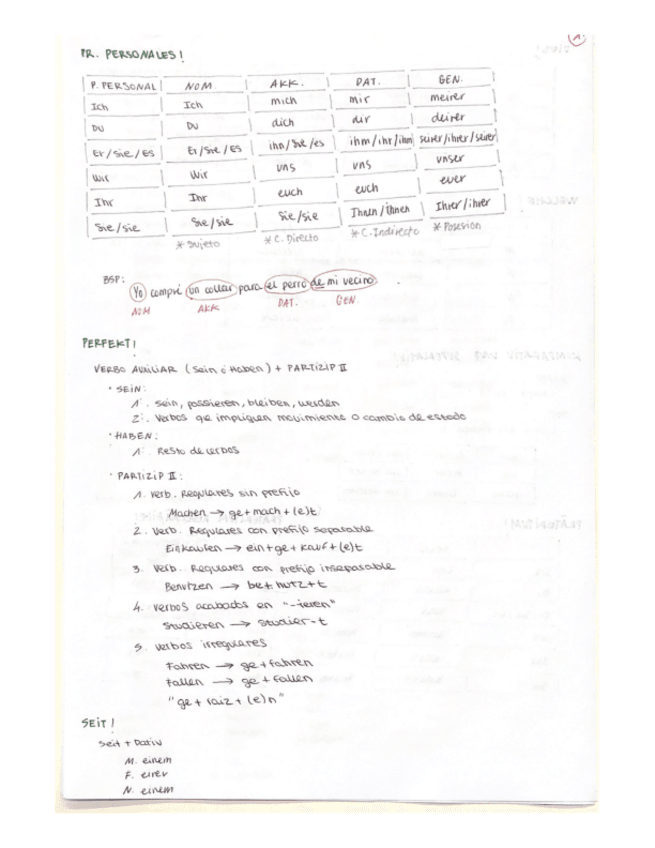 PR. PERSONALES!
P. PERSONAL NOM. AKK. DAT. GEN.
Ich Ich mich mir meirer
Du Du dich dir deirer
Er/Sie/Es Er/Sie/Es ihn/Sie/es ihm/ihr/ihm seirer/ihrer/seirer
Wir Wir uns uns unser
Ihr Ihr euch euch euer
Sie/sie Sie/sie Sie/sie Ihnen/ihnen Ihrer/ihrer
* Sujeto * C. Directo * C. Indirecto * Posesión
BSP:
Yo compré un collar para el perro de mi vecino.
NOM AKK DAT. GEN.
PERFEKT!
VERBO AUXILIAR (Sein ó Haben) + PARTIZIP II
· SEIN:
1. Sein, passieren, bleiben, werden
2. Verbos qe impliquen movimiento o cambio de estado
· HABEN:
1. Resto de verbos
· PARTIZIP II:
1. Verb. Regulares sin prefijo
Machen → ge + mach + (e)t
2. Verb. Regulares con prefijo separable
Einkaufen → ein + ge + kauf + (e)t
3. Verb. Regulares con prefijo inseparable
Benutzen → be + nutz + t
4. Verbos acabados en "-ieren"
Studieren → studier-t
5. Verbos irregulares
Fahren → ge + fahren
Fallen → ge + fallen
"ge + raiz + (e)n"
SEIT!
Seit + Dativ
M. einem
F. eirer
N. einem